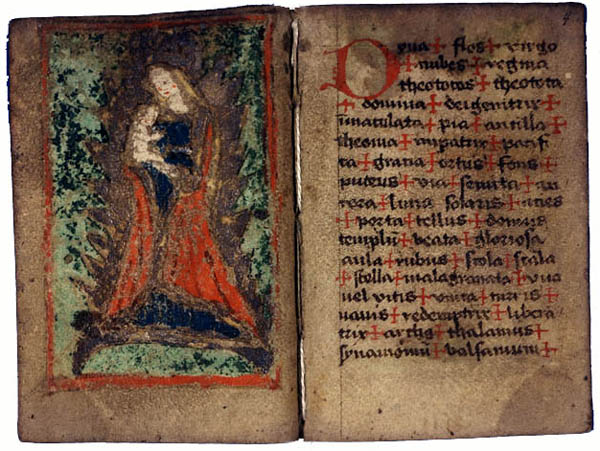 4
Dyua + flos + virgo
+ nubes + regina
theotocos + theotoca
+ domina + deigenitrix +
imaculata + pia + ancilla +
+ pacifi
ca + gratia + ortus + fons +
puteus + via + semita + au
rora + luna + solaris + acies
+ porta + tellus + domus
templū + beata + gloriosa
aula + rubus + stola + scala
+ stella + malagranata + vua
uel vitis + + turis +
nauis + redemptrix + libera
trix + archa + thalamus +
cynamomū + balsamum +